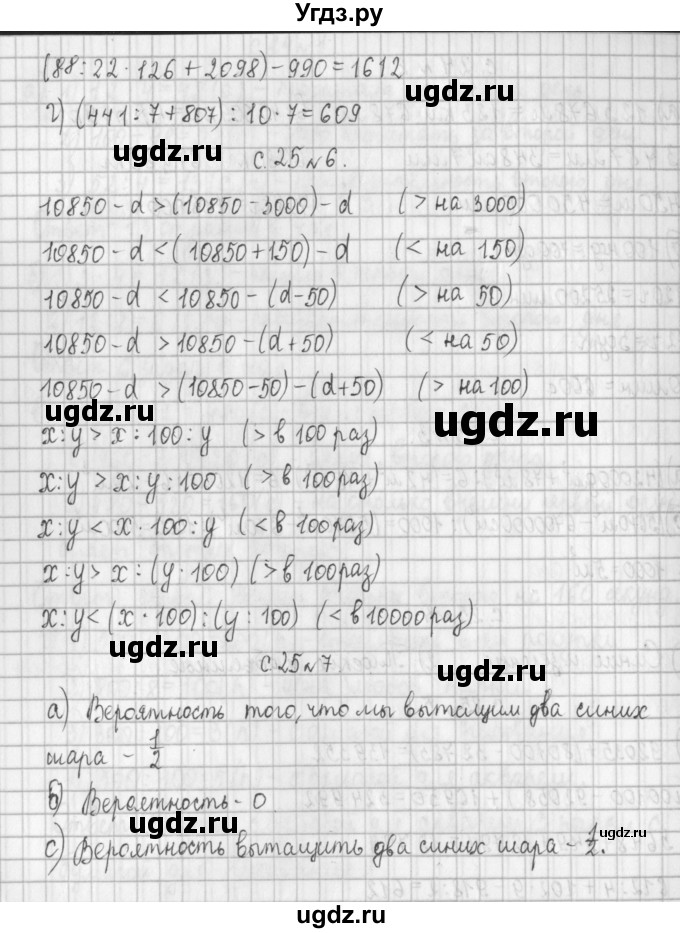 Угдз.ру
(88:22·126+2098)-990=1612
ugdz.ru
г) (441:7+807):10·7=609
ugdz.ru
с.25 №6.
10850-d>(10850-3000)-d (> на 3000)
10850-d<(10850+150)-d (< на 150)
10850-d<10850-(d-50) (> на 50)
10850-d>10850-(d+50) (< на 50)
10850-d>(10850-50)-(d+50) (> на 100)
ugdz.ru
ugdz.ru
x:y>x:100:y (> в 100 раз)
x:y>x:y:100 (> в 100 раз)
x:y<x·100:y (< в 100 раз)
x:y>x:(y·100) (> в 100 раз)
x:y<(x·100):(y:100) (< в 10000 раз)
ugdz.ru
ugdz.ru
с.25 №7.
а) Вероятность того, что мы вытащим два синих
шара - 1/2
ugdz.ru
ugdz.ru
б) Вероятность - 0
ugdz.ru
ugdz.ru
с) Вероятность вытащить два синих шара - 1/2.
ugdz.ru
ugdz.ru